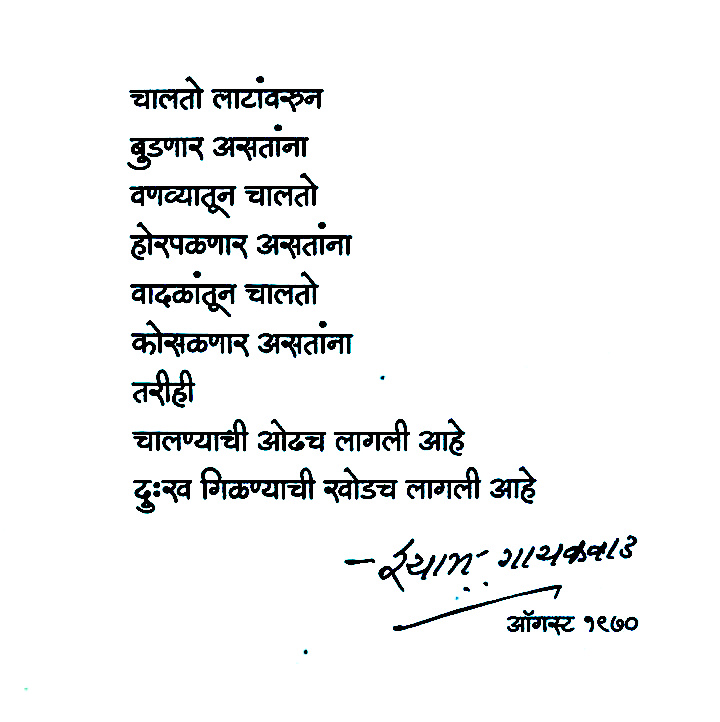 चालतो लाटांवरुन
बुडणार असतांना
वणव्यातून चालतो
होरपळणार असतांना
वादळांतून चालतो
कोसळणार असतांना
तरीही
चालण्याची ओढच लागली आहे
दुःख गिळण्याची खोडच लागली आहे
– श्याम गायकवाड
ऑगस्ट १९७०